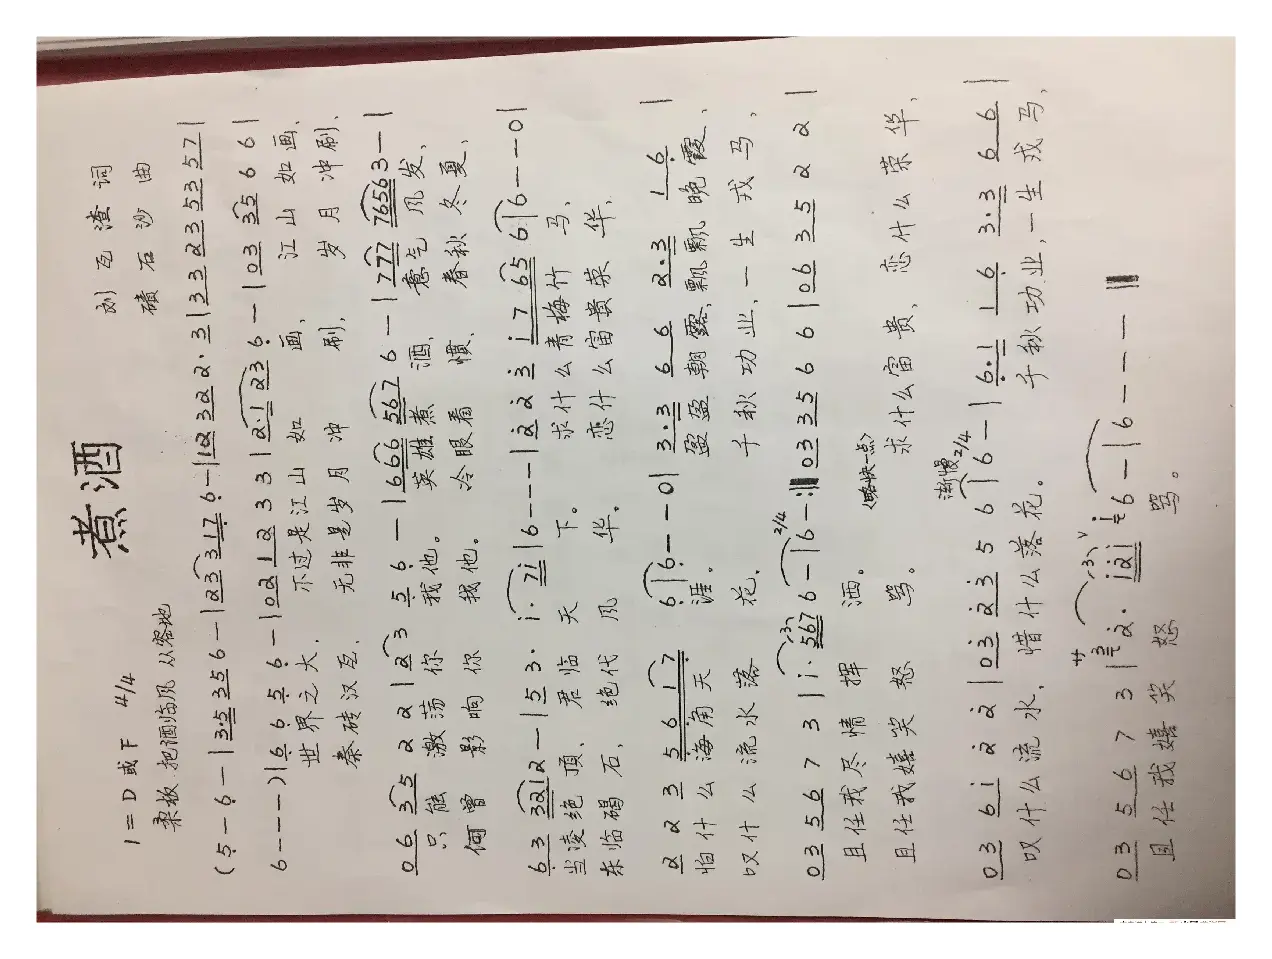 煮酒
刘瓦渣 词
1=D或F 4/4
碛石沙 曲
柔板 把酒临风 从容地
(5 - 6 - | 3·5 3 5 6 - | 2 3 3 1 7 6 - | 1 2 3 2 2 2 · 3 | 3 3 2 3 5 3 5 7 |
6 - - - ) | 6 6 5 6 - | 0 2 2 1 2 3 3 | 2·1 2 3 6 - | 0 3 3 5 6 6 |
世界之大, 不过是江山如画, 江山如画,
秦砖汉瓦, 无非是岁月冲刷, 岁月冲刷,
0 6 3 5 2 2 | 2 3 5 6 - | 6 6 6 5 6 7 6 - | 7 7 7 7 6 5 6 3 - |
只能激荡你我他。 英雄煮酒, 意气风发,
何曾影响你我他。 冷眼看惯, 春秋冬夏,
6 3 3 2 1 2 - | 5 3 · i · 7 i | 6 - - - | 2 2 3 i 7 6 5 6 | 6 - - 0 |
当凌绝顶、君临天下。 求什么青梅竹马,
东临碣石、绝代风华。 恋什么富贵荣华,
2 2 3 5 6 1 7 6 | 6 - - 0 | 3·3 6 6 2·3 1 6 |
怕什么海角天涯。 盈盈朝露,飘飘晚霞,
叹什么流水落花。 千秋功业,一生戎马,
0 3 5 6 7 3 | i · 5 6 7 6 - | 2/4 6 - :|| 0 3 3 5 6 6 | 0 6 3 5 2 2 |
且任我尽情挥洒。 (略快一点)
且任我嬉笑怒骂。 求什么富贵, 恋什么荣华,
渐慢 2/4
0 3 6 i 2 2 | 0 3 2 3 5 6 | 6 - | 6·1 1 6 3·3 6 6 |
叹什么流水, 惜什么落花。 千秋功业,一生戎马,
0 3 5 6 7 3 | 2 · i 2 i 6 - | 6 - - - ||
且任我嬉笑怒骂。